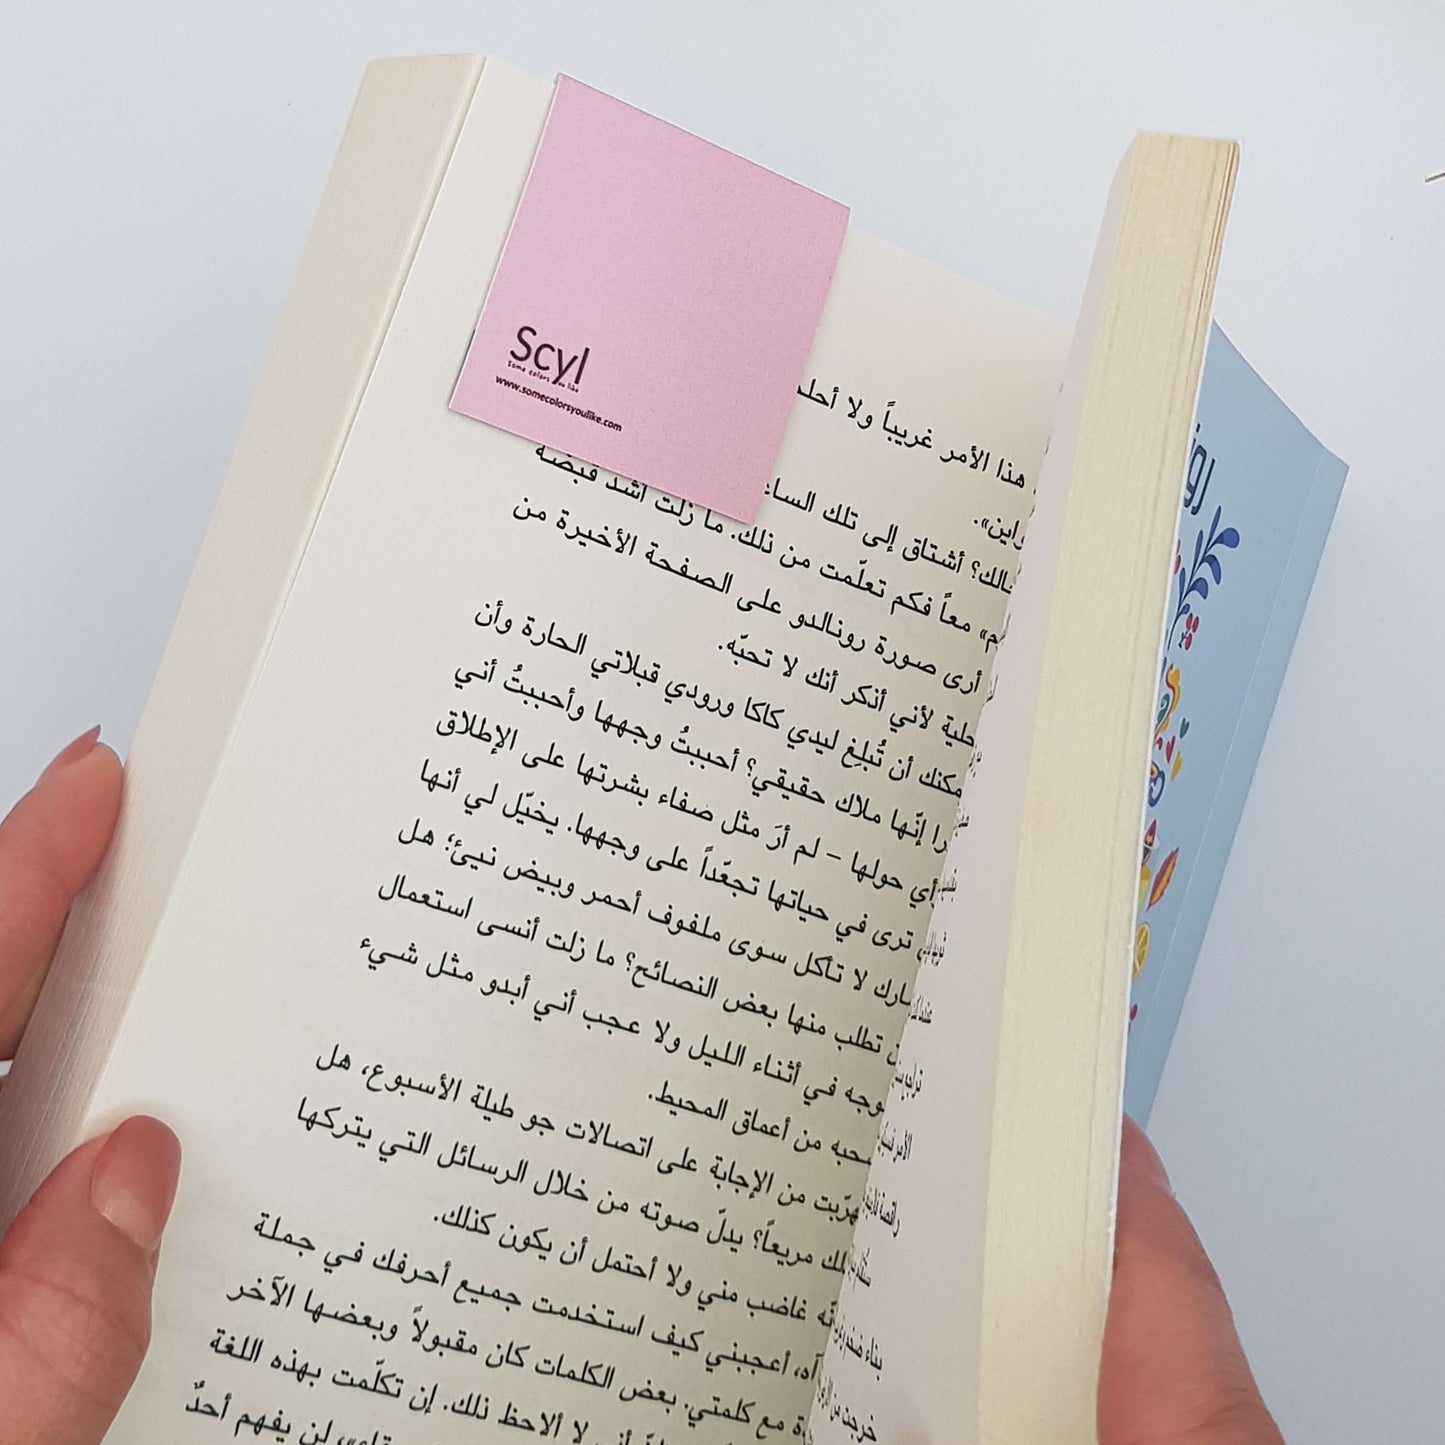 Scyl
Some colors you like
www.somecolorsyoulike.com
هذا الأمر غريباً ولا
أشتاق إلى تلك
معاً فكم تعلّمت من ذلك. ما زلت أشد قبضة
أرى صورة رونالدو على الصفحة الأخيرة من
لأني أذكر أنك لا تحبّه.
أن تُبلِغ ليدي كاكا ورودي قبلاتي الحارة وأن
إنّها ملاك حقيقي؟ أحببتُ وجهها وأحببتُ أني
حولها – لم أرَ مثل صفاء بشرتها على الإطلاق
ترى في حياتها تجعّداً على وجهها. يخيّل لي أنها
لا تأكل سوى ملفوف أحمر وبيض نيئ؛ هل
تطلب منها بعض النصائح؟ ما زلت أنسى استعمال
في أثناء الليل ولا عجب أني أبدو مثل شيء
من أعماق المحيط.
من الإجابة على اتصالات جو طيلة الأسبوع، هل
مريعاً؟ يدلّ صوته من خلال الرسائل التي يتركها
غاضب مني ولا أحتمل أن يكون كذلك.
آه، أعجبني كيف استخدمت جميع أحرفك في جملة
مع كلمتي. بعض الكلمات كان مقبولاً وبعضها الآخر
أني لا ألاحظ ذلك. إن تكلّمت بهذه اللغة
لن يفهم أحدٌ